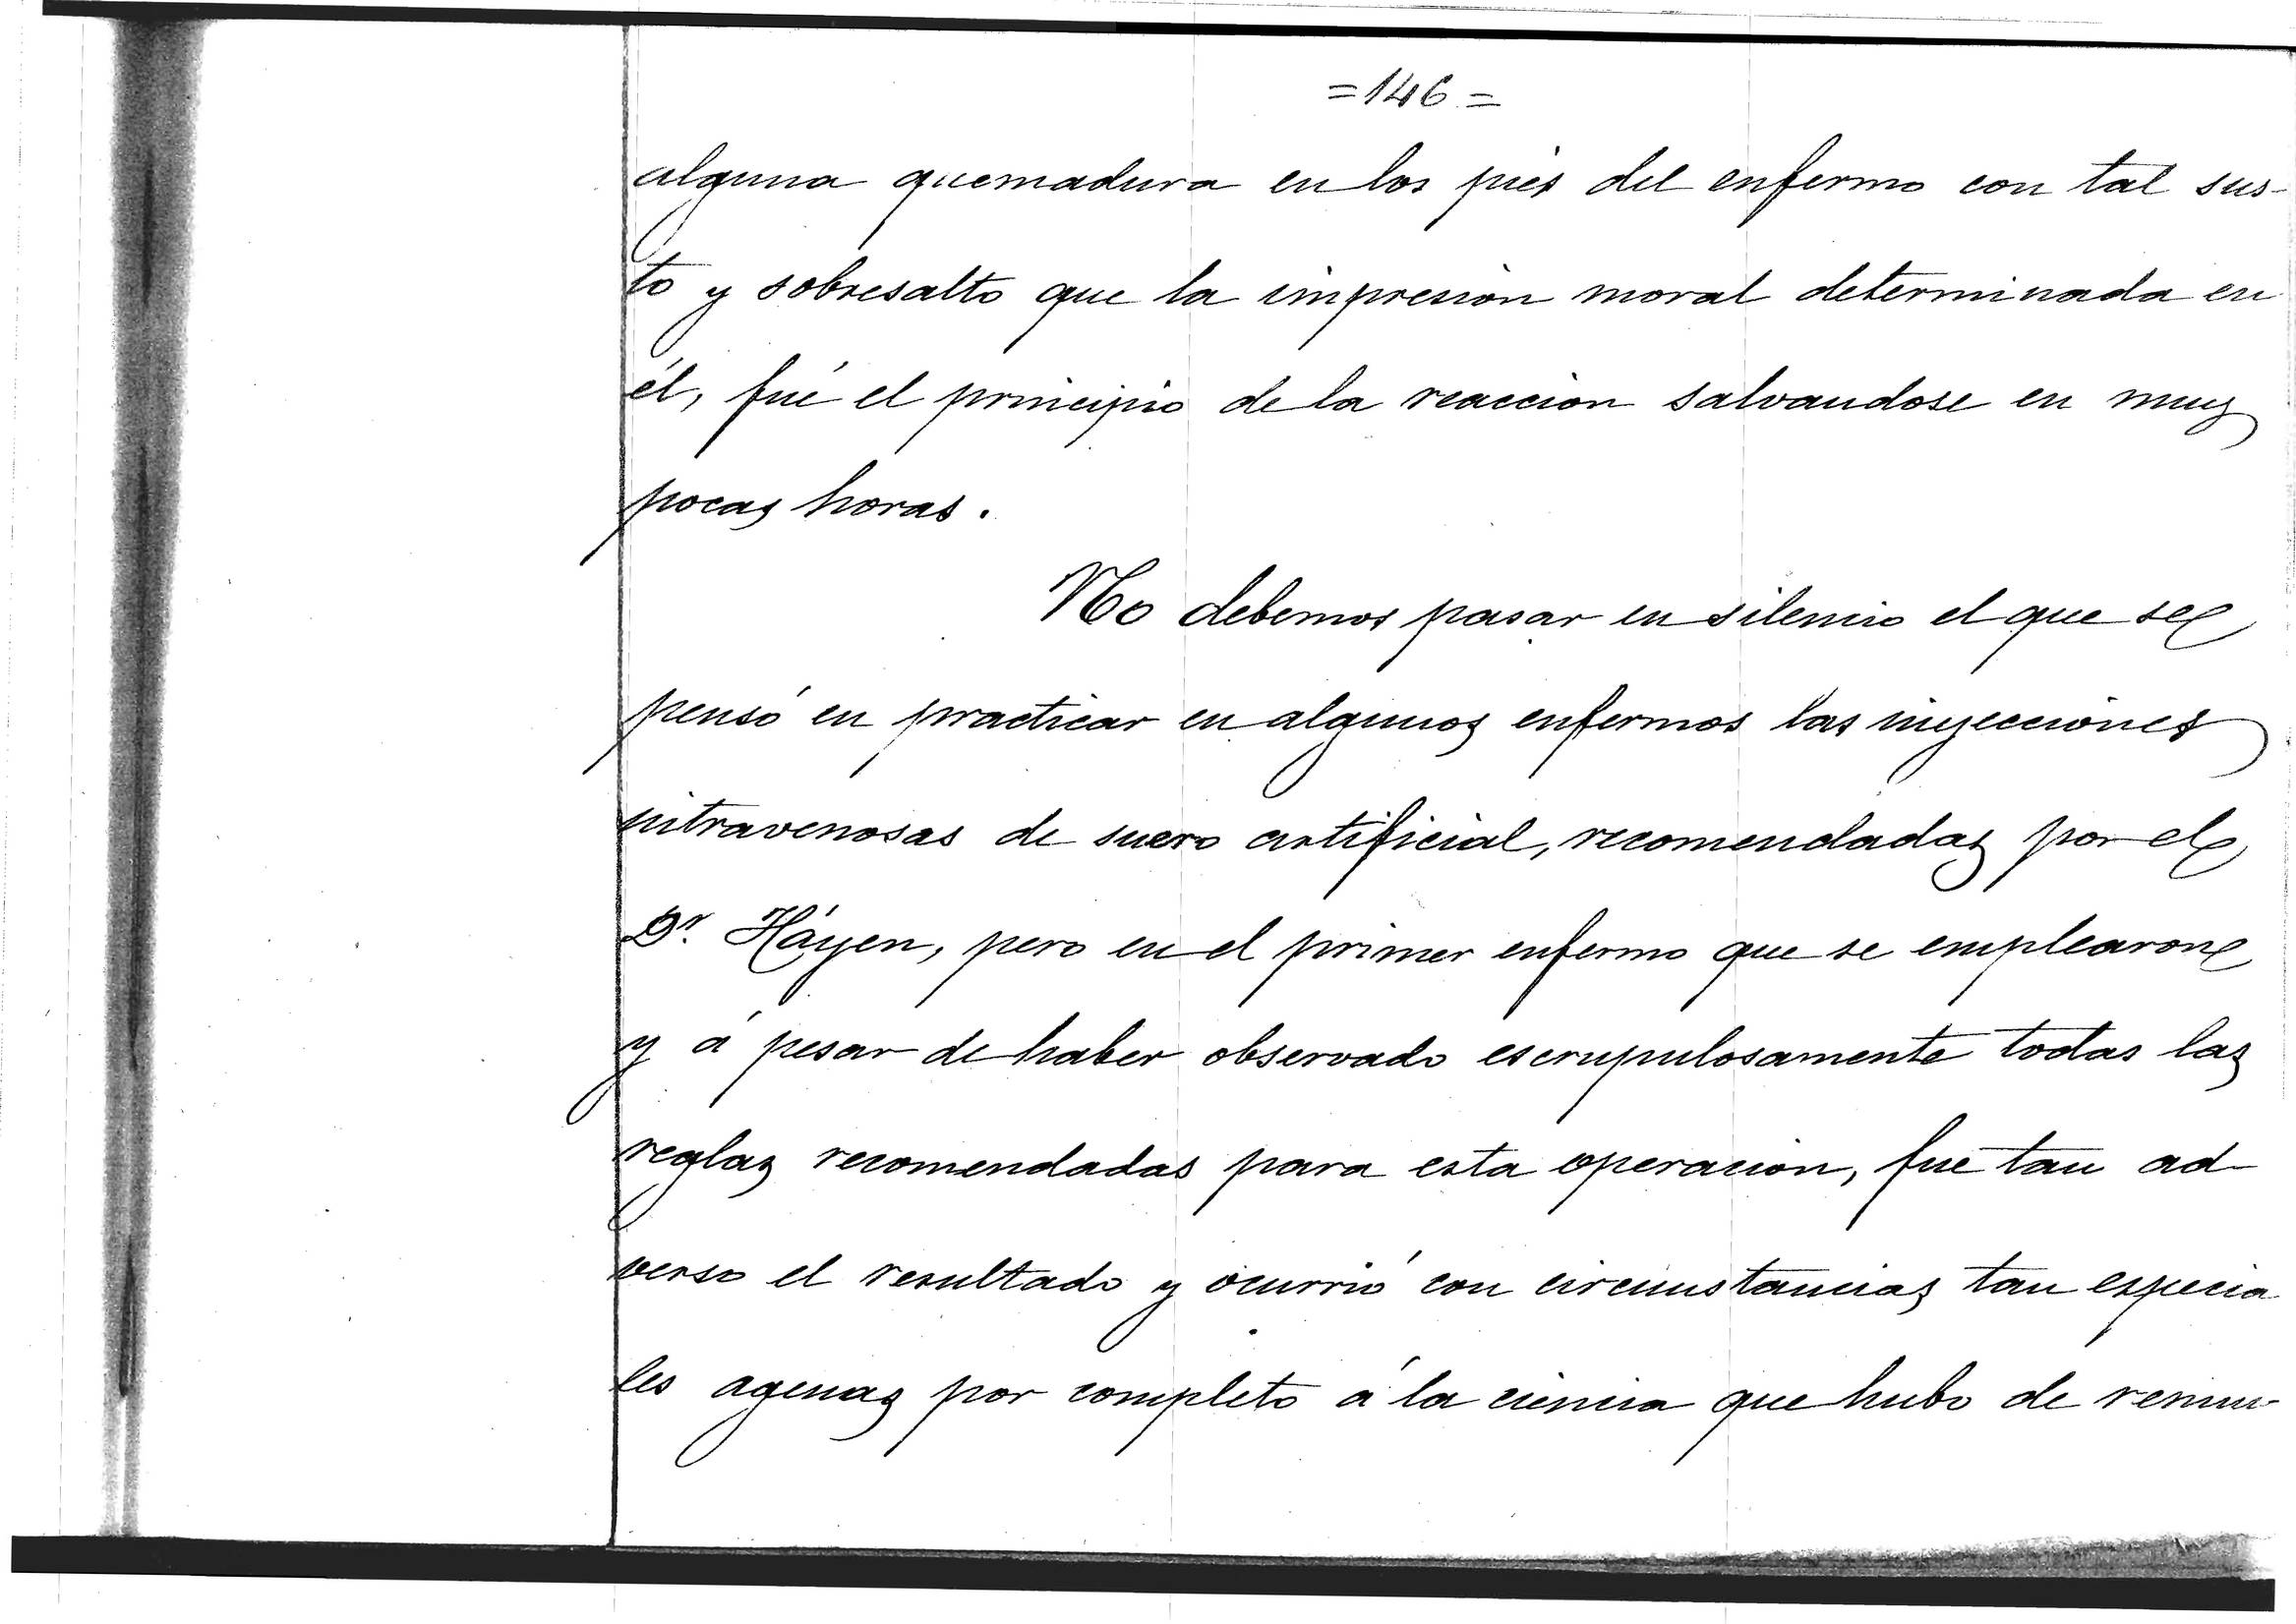 =146=
alguna quemadura en los piés del enfermo con tal sus-
to y sobresalto que la impresion moral determinada en
él, fué el principio de la reaccion salvandose en muy
pocas horas.
No debemos pasar en silencio el que se
pensó en practicar en algunos enfermos las inyecciones
intravenosas de suero artificial, recomendadas por el
Dr. Háyen, pero en el primer enfermo que se emplearon
y á pesar de haber observado escrupulosamente todas las
reglas recomendadas para esta operacion, fue tan ad-
verso el resultado y ocurrió con circunstancias tan especia
les agenas por completo á la ciencia que hubo de renun-